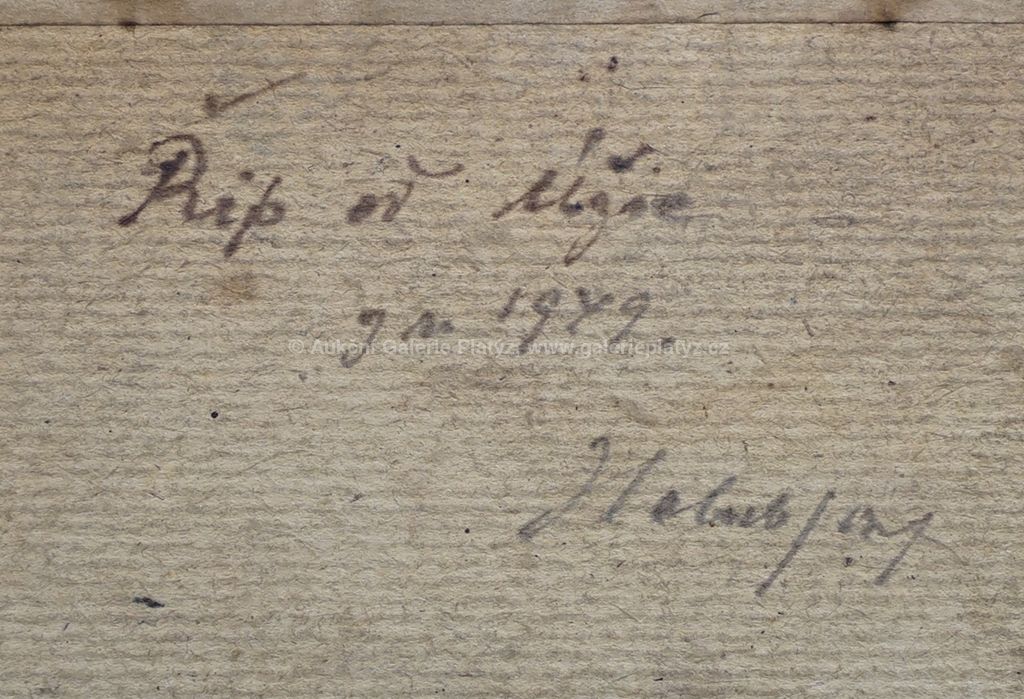 Říp od Mšce
1949.
© Aukční Galerie Platýz, www.galerieplatyz.cz
Holub